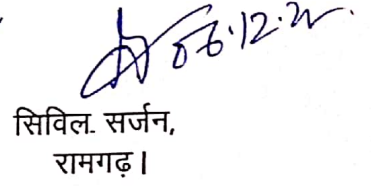 06.12.21
सिविल सर्जन,
रामगढ़।